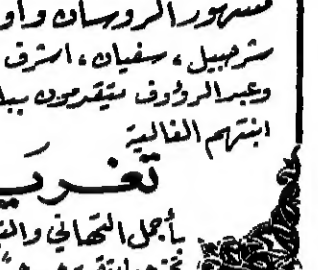 مشهور الروسان وأو
شرحبيل ، سفيان ، اشرف
وعبد الرؤوف يتقدمون ببا
ابنتهم الغالية
تغريـ
بأجمل التهاني والت